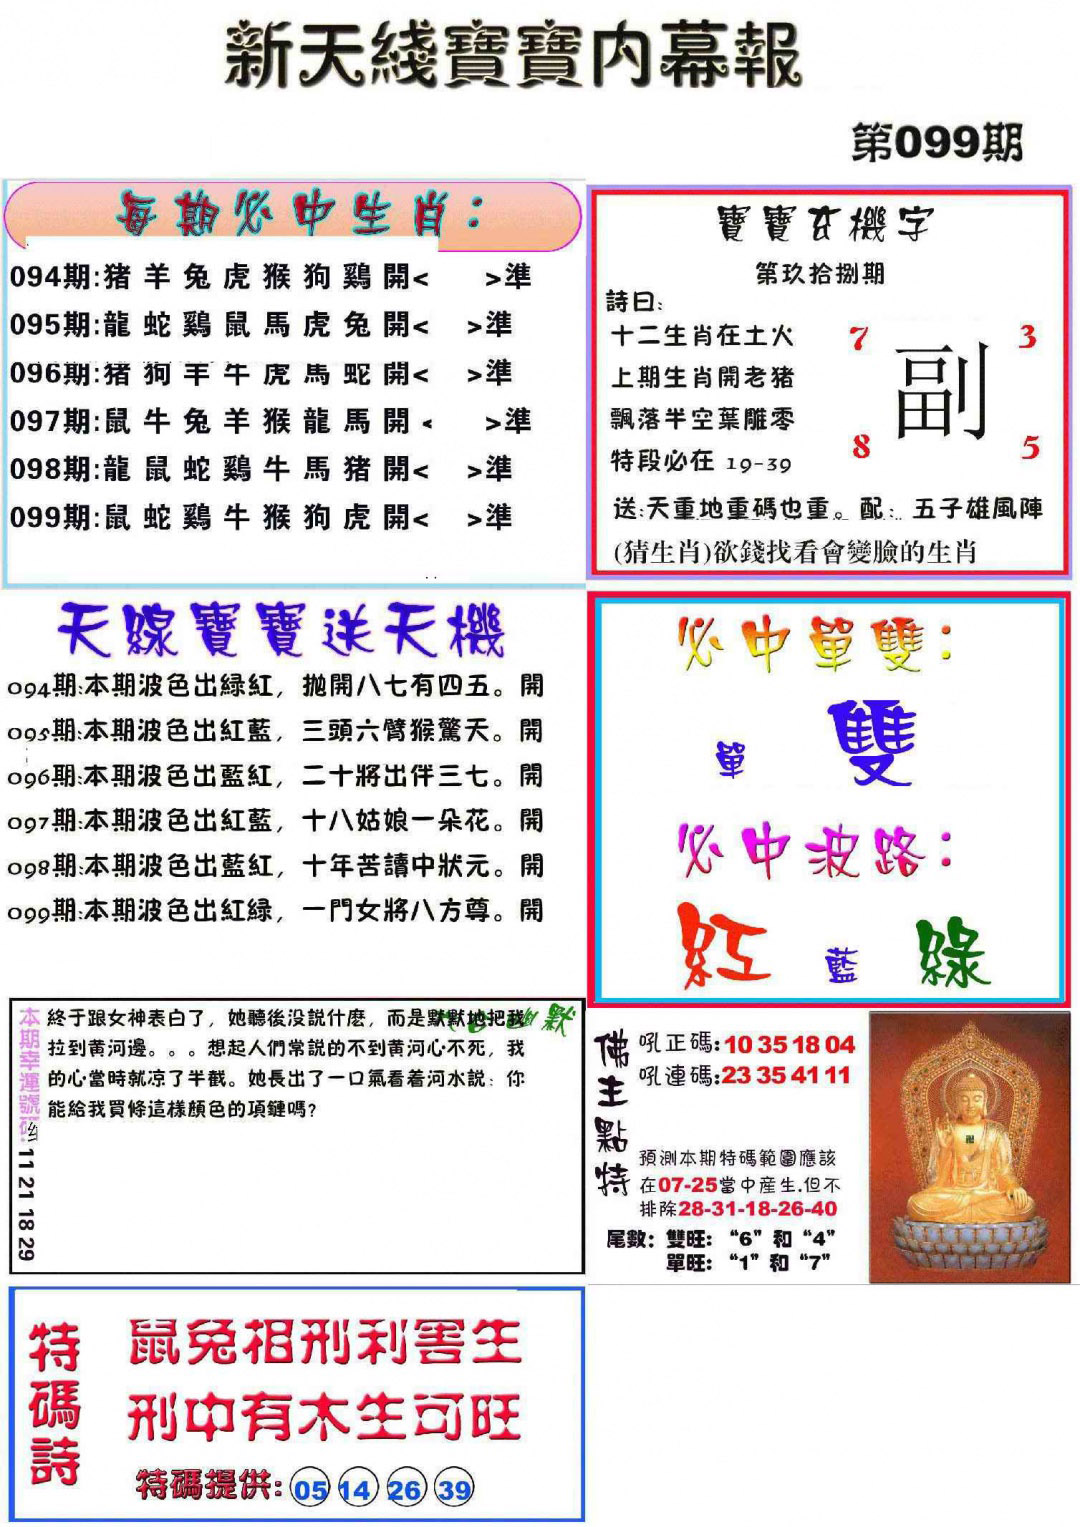 新天綫寶寶内幕報
第099期
每期必中生肖：
094期:猪 羊 兔 虎 猴 狗 鷄 開< >準
095期:龍 蛇 鷄 鼠 馬 虎 兔 開< >準
096期:猪 狗 羊 牛 虎 馬 蛇 開< >準
097期:鼠 牛 兔 羊 猴 龍 馬 開< >準
098期:龍 鼠 蛇 鷄 牛 馬 猪 開< >準
099期:鼠 蛇 鷄 牛 猴 狗 虎 開< >準
寶寶玄機字
第玖拾捌期
詩曰:
十二生肖在土火
上期生肖開老猪
飄落半空葉雕零
特段必在 19-39
7 3
副
8 5
送:天重地重碼也重。配: 五子雄風陣
(猜生肖)欲錢找看會變臉的生肖
天線寶寶送天機
094期:本期波色出綠紅，抛開八七有四五。開
095期:本期波色出紅藍，三頭六臂猴驚天。開
096期:本期波色出藍紅，二十將出伴三七。開
097期:本期波色出紅藍，十八姑娘一朵花。開
098期:本期波色出藍紅，十年苦讀中狀元。開
099期:本期波色出紅綠，一門女將八方尊。開
必中單雙：
單 雙
必中波路：
紅 藍 綠
本期幸運號碼:
11 21 18 29
幽默
終于跟女神表白了，她聽後没説什麽，而是默默地把我
拉到黄河邊。。。想起人們常説的不到黄河心不死，我
的心當時就凉了半截。她長出了一口氣看着河水説：你
能給我買條這樣顔色的項鏈嗎?
佛主點特
吼正碼:10 35 18 04
吼連碼:23 35 41 11
預測本期特碼範圍應該
在07-25當中産生.但不
排除28-31-18-26-40
尾數：雙旺：“6”和“4”
單旺：“1”和“7”
特碼詩
鼠兔相刑利害生
刑中有木生可旺
特碼提供: 05 14 26 39